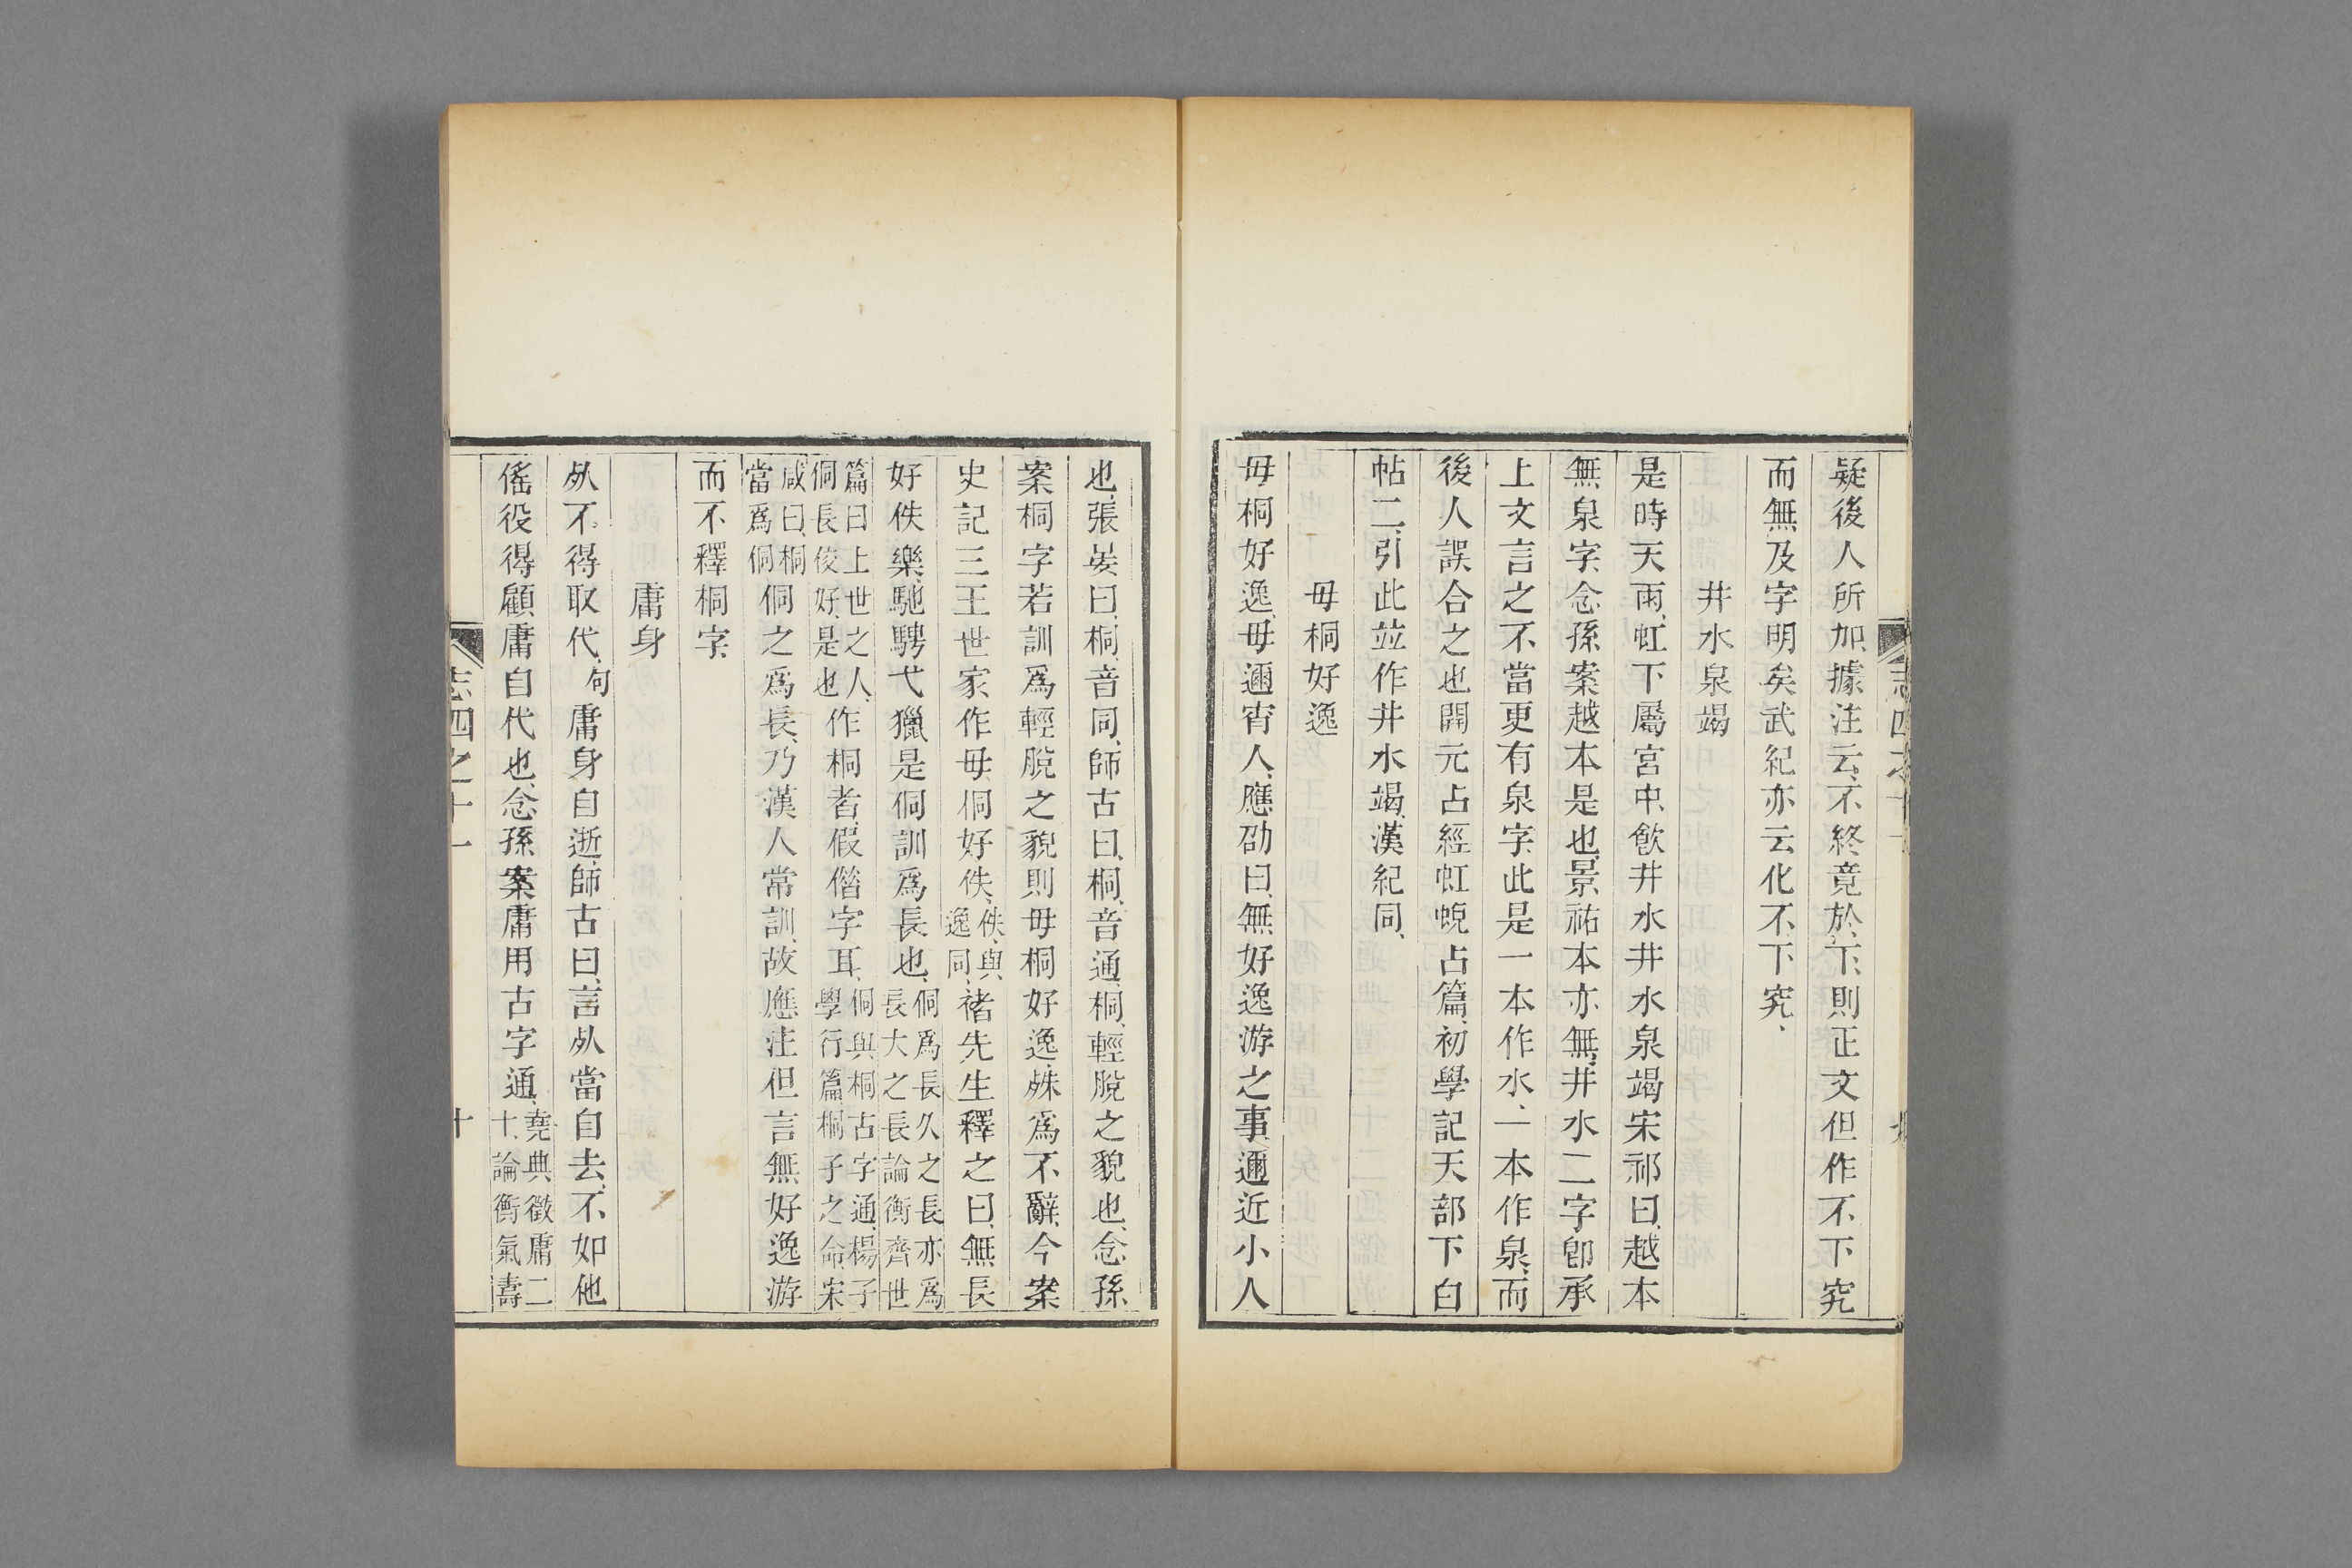 疑後人所加、據注云、不終竟於下、則正文但作不下究
而無及字明矣、武紀亦云化不下究、
井水泉竭
是時天雨、虹下屬宮中、飲井水井水泉竭宋祁曰、越本
無泉字、念孫案越本是也、景祐本亦無、井水二字卽承
上文言之不當更有泉字、此是一本作水、一本作泉、而
後人誤合之也開元占經虹蜺占篇、初學記天部下白
帖二、引此竝作井水竭、漢紀同、
毋桐好逸
毋桐好逸、毋邇宵人、應劭曰、無好逸游之事、邇近小人
也、張晏曰、桐、音同、師古曰、桐、音通、桐、輕脫之貌也、念孫
案桐字若訓爲輕脫之貌則毋桐好逸、殊爲不辭、今案
史記三王世家、作毋侗好佚、佚、與、逸同、褚先生釋之曰、無長
好佚樂、馳騁弋獵、是侗訓爲長也、侗爲長久之長、亦爲長大之長、論衡齊世
篇曰上世之人、侗長佼好、是也、作桐者、假借字耳、侗與桐古字通、楊子學行篇、桐子之命、宋
咸曰、桐當爲侗侗之爲長、乃漢人常訓、故應注但言無好逸游
而不釋桐字、
庸身
𣦸不得取代、句庸身自逝、師古曰、言𣦸當自去、不如他
傜役得顧庸自代也、念孫案庸用古字通、堯典徵庸二十、論衡氣壽
志四之十一
十